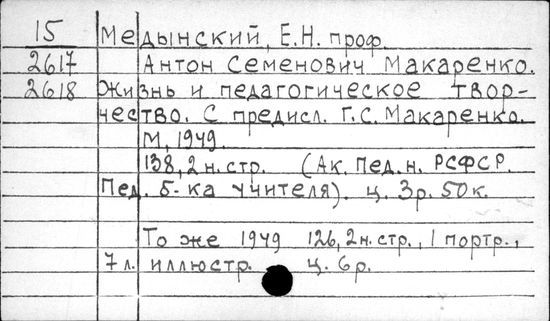 15 Медынский, Е.Н. проф.
2617 Антон Семенович Макаренко.
2618 Жизнь и педагогическое твор-
чество. С предисл. Г.С. Макаренко.
М, 1949.
138, 2 н. стр. (Ак. Пед. н. РСФСР.
Пед. б-ка учителя). ц. 3р. 50 к.
То же 1949 126, 2 н. стр., 1 портр.,
7 л. иллюстр. ц. 6 р.